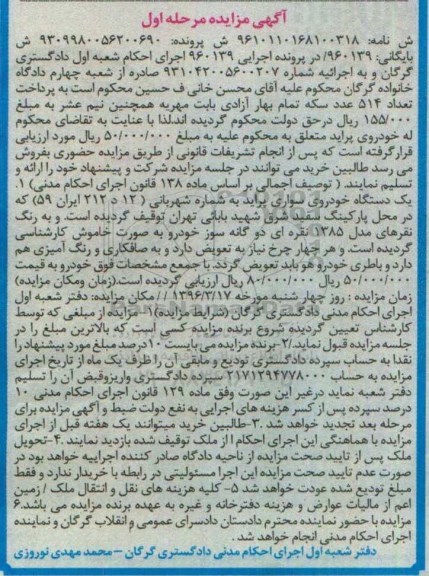 آگهی مزایده مرحله اول
ش نامه: ۹۶۱۰۱۱۰۱۶۸۱۰۰۳۱۸ ش پرونده: ۹۳۰۹۹۸۰۰۵۶۲۰۰۶۹۰ ش
بایگانی: ۹۶۰۱۳۹/ در پرونده اجرایی ۹۶۰۱۳۹ اجرای احکام شعبه اول دادگستری
گرگان و به اجرائیه شماره ۹۳۱۰۴۲۰۰۵۶۰۰۲۰۷ صادره از شعبه چهارم دادگاه
خانواده گرگان محکوم علیه آقای محسن خانی ف حسین محکوم است به پرداخت
تعداد ۵۱۴ عدد سکه تمام بهار آزادی بابت مهریه همچنین نیم عشر به مبلغ
۱۵۵/۰۰۰ ریال درحق دولت محکوم گردیده اند.لذا با عنایت به تقاضای محکوم
له خودروی پراید متعلق به محکوم علیه به مبلغ ۵۰/۰۰۰/۰۰۰ ریال مورد ارزیابی
قرارگرفته است که پس از انجام تشریفات قانونی از طریق مزایده حضوری بفروش
می رسد طالبین خرید می توانند در جلسه مزایده شرکت و پیشنهاد خود را ارائه و
تسلیم نمایند. ( توصیف اجمالی بر اساس ماده ۱۳۸ قانون اجرای احکام مدنی) ۱.
یک دستگاه خودروی سواری پراید به شماره شهربانی ( ۱۲ د ۲۱۲ ایران ۵۹) که
در محل پارکینگ مستقر شهید بابائی تهران توقیف گردیده است. و به رنگ
نقره‌ای مدل ۱۳۸۵ نقره ای دو گانه سوز خودرو به صورت خاموش کارشناسی
گردیده است. و هر چهار چرخ نیاز به تعویض دارد و به صافکاری و رنگ آمیزی هم
دارد و باطری خودرو هم باید تعویض گردد. با جمع مشخصات فوق خودرو به قیمت
۵۰/۰۰۰/۰۰۰ ریال ۸۰/۰۰۰/۰۰۰ ریال ارزیابی گردیده است.(زمان ومکان مزایده)
زمان مزایده : روز چهار شنبه مورخه ۱۳۹۶/۳/۱۷ // مکان مزایده: دفتر شعبه اول
اجرای احکام مدنی دادگستری گرگان (شرایط مزایده) ۱- مزایده از مبلغی که توسط
کارشناس تعیین گردیده شروع برنده مزایده کسی است که بالاترین مبلغ را در
جلسه مزایده قبول نماید./۲-برنده مزایده می بایست ۱۰درصد مبلغ مورد پیشنهاد را
نقدا به حساب سپرده دادگستری تودیع و مابقی آن را ظرف یک ماه از تاریخ اجرای
مزایده به حساب ۲۱۷۱۲۹۴۷۷۸۰۰۰ سپرده دادگستری واریزوقبض آن را تسلیم
دفتر شعبه نماید درغیر این صورت وفق ماده ۱۲۹ قانون اجرای احکام مدنی ۱۰
درصد سپرده پس از کسر هزینه های اجرایی به نفع دولت ضبط و آگهی مزایده برای
مرحله بعد تجدید خواهد شد .۳-طالبین خرید میتوانند یک هفته قبل از اجرای
مزایده با هماهنگی این اجرای احکام ا ز ملک توقیف شده بازدید نمایند .۴-تحویل
ملک پس از تایید صحت مزایده از ناحیه دادگاه صادر کننده اجراییه خواهد بود در
صورت عدم تایید صحت مزایده این اجرا مسئولیتی در رابطه با خریدار ندارد و فقط
مبلغ تودیع شده عودت خواهد شد ۵- کلیه هزینه های نقل و انتقال ملک / زمین
اعم از مالیات عوارض و هزینه دفترخانه و غیره به عهده برنده مزایده می باشد.۶
مزایده با حضور نماینده محترم دادستان دادسرای عمومی وانقلاب گرگان و نماینده
اجرای احکام مدنی انجام خواهد شد.
دفتر شعبه اول اجرای احکام مدنی دادگستری گرگان – محمد مهدی نوروزی